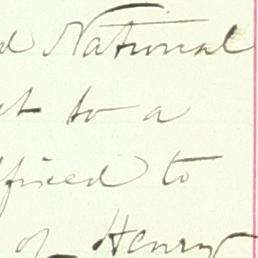 d National
ct to a
ffixed to
of Henry